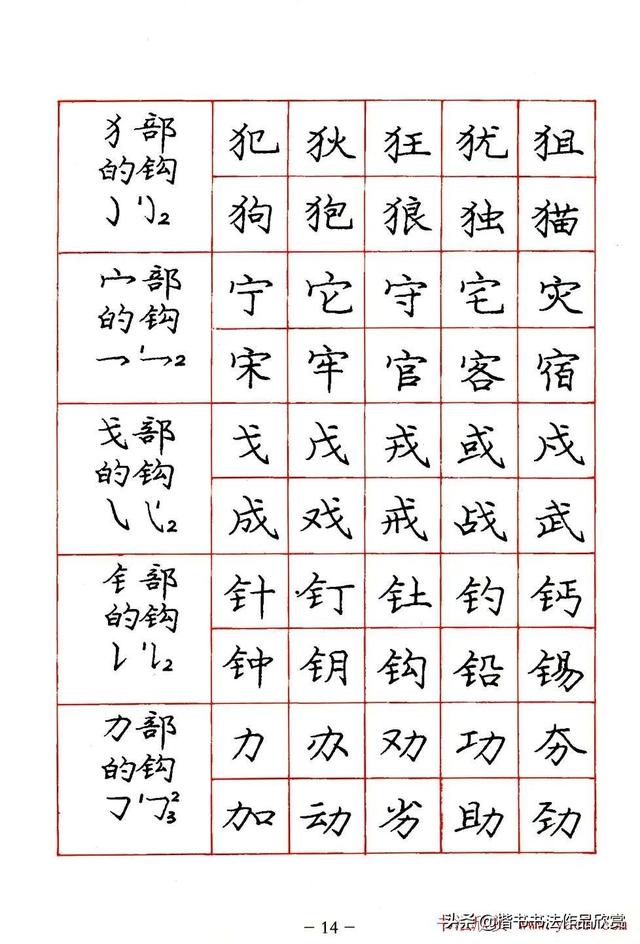 犭部
的钩
犯 狄 狂 犹 狙
狗 狍 狼 独 猫
宀部
的钩
宁 它 守 宅 灾
宋 牢 官 客 宿
戈部
的钩
戈 戊 戎 或 戍
成 戏 戒 战 武
钅部
的钩
针 钉 钍 钓 钙
钟 钥 钩 铅 锡
力部
的钩
力 办 劝 功 夯
加 动 劣 助 劲
- 14 -
头条@楷书书法作品欣赏